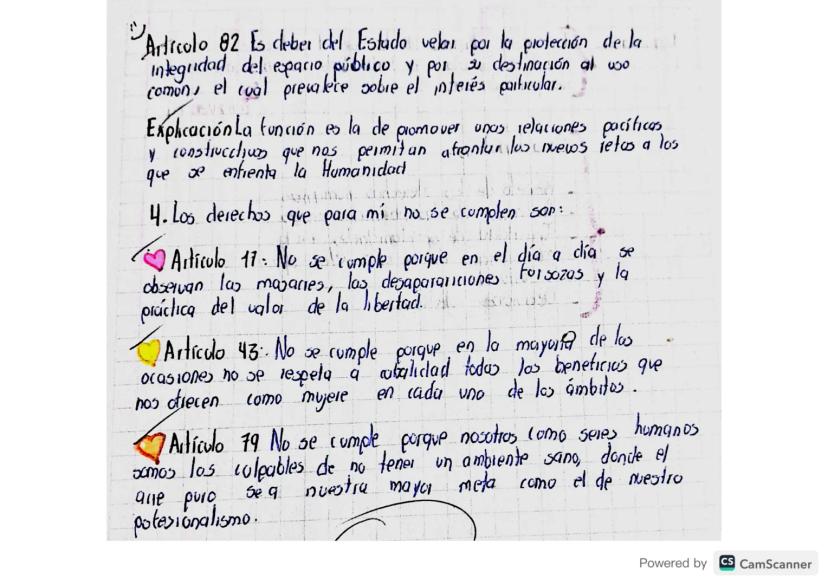 Artículo 82 Es deber del Estado velar por la protección de la
integridad del espacio público y por su destinación al uso
común, el cual prevalece sobre el interés particular.
Explicación La función es la de promover unas relaciones pacíficas
y constructivas que nos permitan afrontar los nuevos retos a los
que se enfrenta la Humanidad
4. Los derechos que para mi no se cumplen son:
Artículo 11: No se cumple porque en el día a día se
observan las masacres, las desapariciones forsozas y la
práctica del valor de la libertad.
Artículo 43: No se cumple porque en la mayoría de las
ocasiones no se respeta a cabalidad todos los beneficios que
nos ofrecen como mujere en cada uno de los ámbitos.
Artículo 79 No se cumple porque nosotros como seres humanos
somos los culpables de no tener un ambiente sano, donde el
aire puro sea nuestra mayor meta como el de nuestro
Powered by CS CamScanner